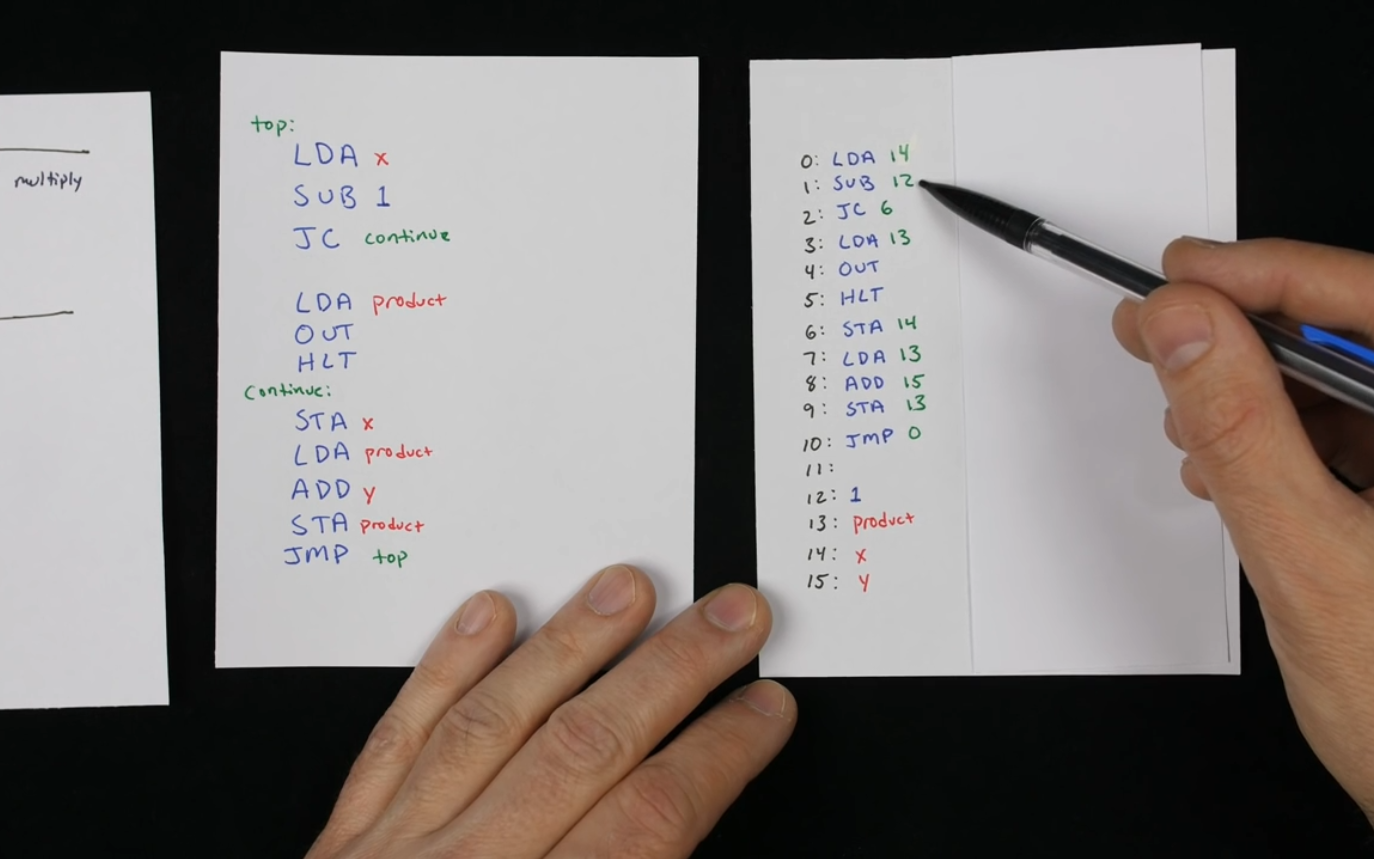 multiply
top:
LDA x
SUB 1
JC continue
LDA product
OUT
HLT
continue:
STA x
LDA product
ADD y
STA product
JMP top
0: LDA 14
1: SUB 12
2: JC 6
3: LDA 13
4: OUT
5: HLT
6: STA 14
7: LDA 13
8: ADD 15
9: STA 13
10: JMP 0
11:
12: 1
13: product
14: x
15: y